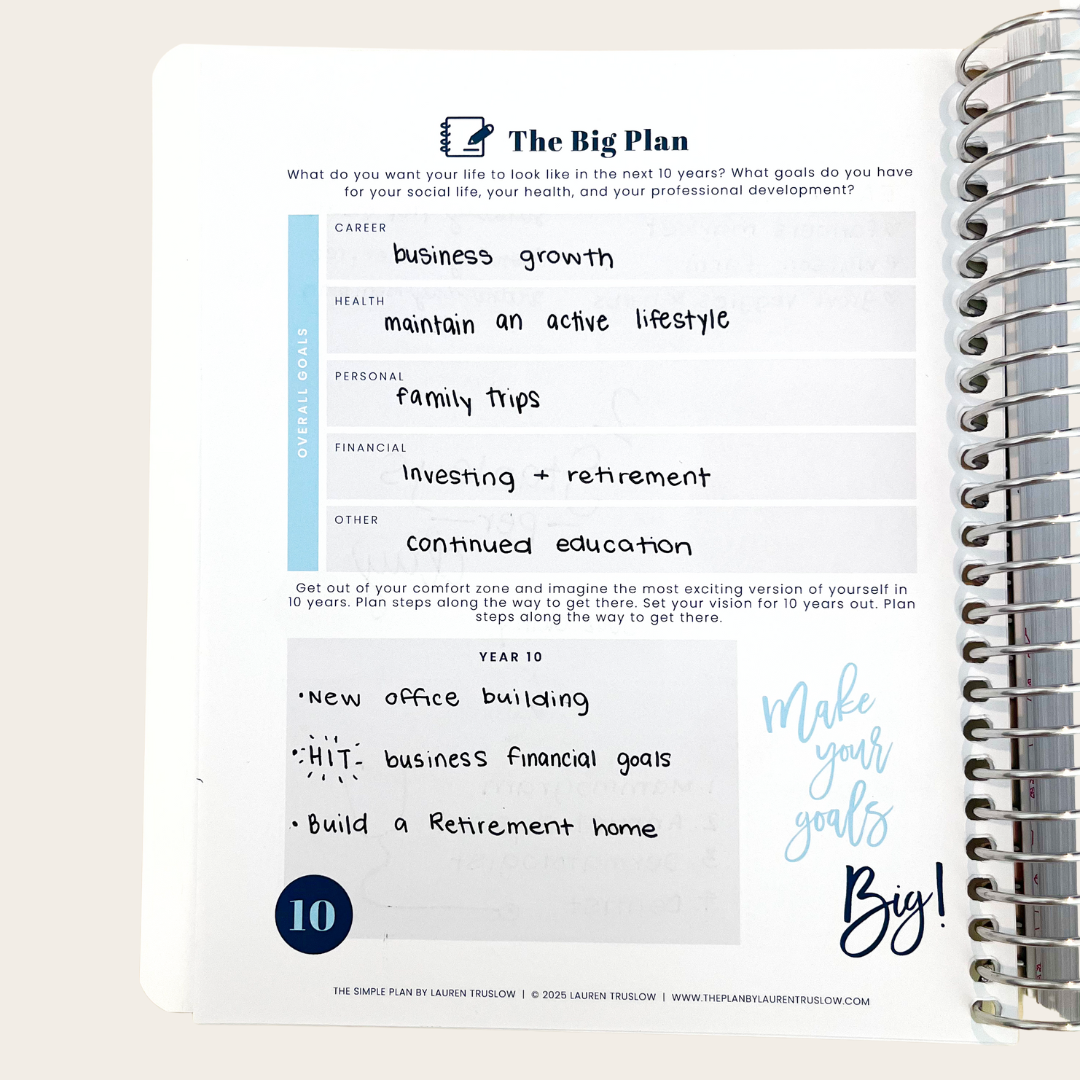 The Big Plan
What do you want your life to look like in the next 10 years? What goals do you have
for your social life, your health, and your professional development?
OVERALL GOALS
CAREER
business growth
HEALTH
maintain an active lifestyle
PERSONAL
family trips
FINANCIAL
Investing + retirement
OTHER
continued education
Get out of your comfort zone and imagine the most exciting version of yourself in
10 years. Plan steps along the way to get there. Set your vision for 10 years out. Plan
steps along the way to get there.
YEAR 10
• New office building
• HIT business financial goals
• Build a Retirement home
10
Make
your
goals
Big!
THE SIMPLE PLAN BY LAUREN TRUSLOW | © 2025 LAUREN TRUSLOW | WWW.THEPLANBYLAURENTRUSLOW.COM